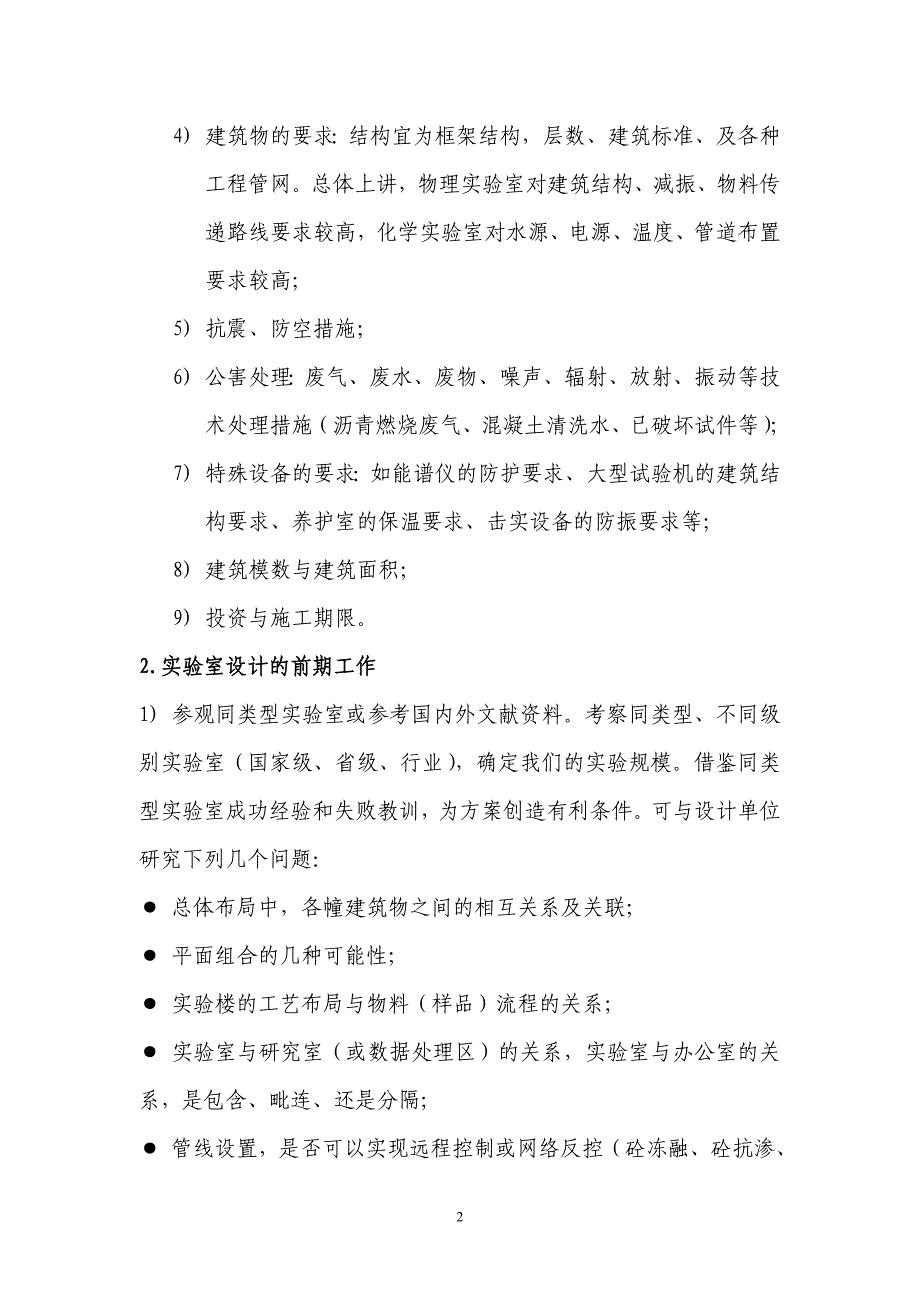 4) 建筑物的要求：结构宜为框架结构，层数、建筑标准、及各种
工程管网。总体上讲，物理实验室对建筑结构、减振、物料传
递路线要求较高，化学实验室对水源、电源、温度、管道布置
要求较高；
5) 抗震、防空措施；
6) 公害处理：废气、废水、废物、噪声、辐射、放射、振动等技
术处理措施（沥青燃烧废气、混凝土清洗水、已破坏试件等）；
7) 特殊设备的要求：如能谱仪的防护要求、大型试验机的建筑结
构要求、养护室的保温要求、击实设备的防振要求等；
8) 建筑模数与建筑面积；
9) 投资与施工期限。
2.实验室设计的前期工作
1) 参观同类型实验室或参考国内外文献资料。考察同类型、不同级
别实验室（国家级、省级、行业），确定我们的实验规模。借鉴同类
型实验室成功经验和失败教训，为方案创造有利条件。可与设计单位
研究下列几个问题：
● 总体布局中，各幢建筑物之间的相互关系及关联；
● 平面组合的几种可能性；
● 实验楼的工艺布局与物料（样品）流程的关系；
● 实验室与研究室（或数据处理区）的关系，实验室与办公室的关
系，是包含、毗连、还是分隔；
● 管线设置，是否可以实现远程控制或网络反控（砼冻融、砼抗渗、
2